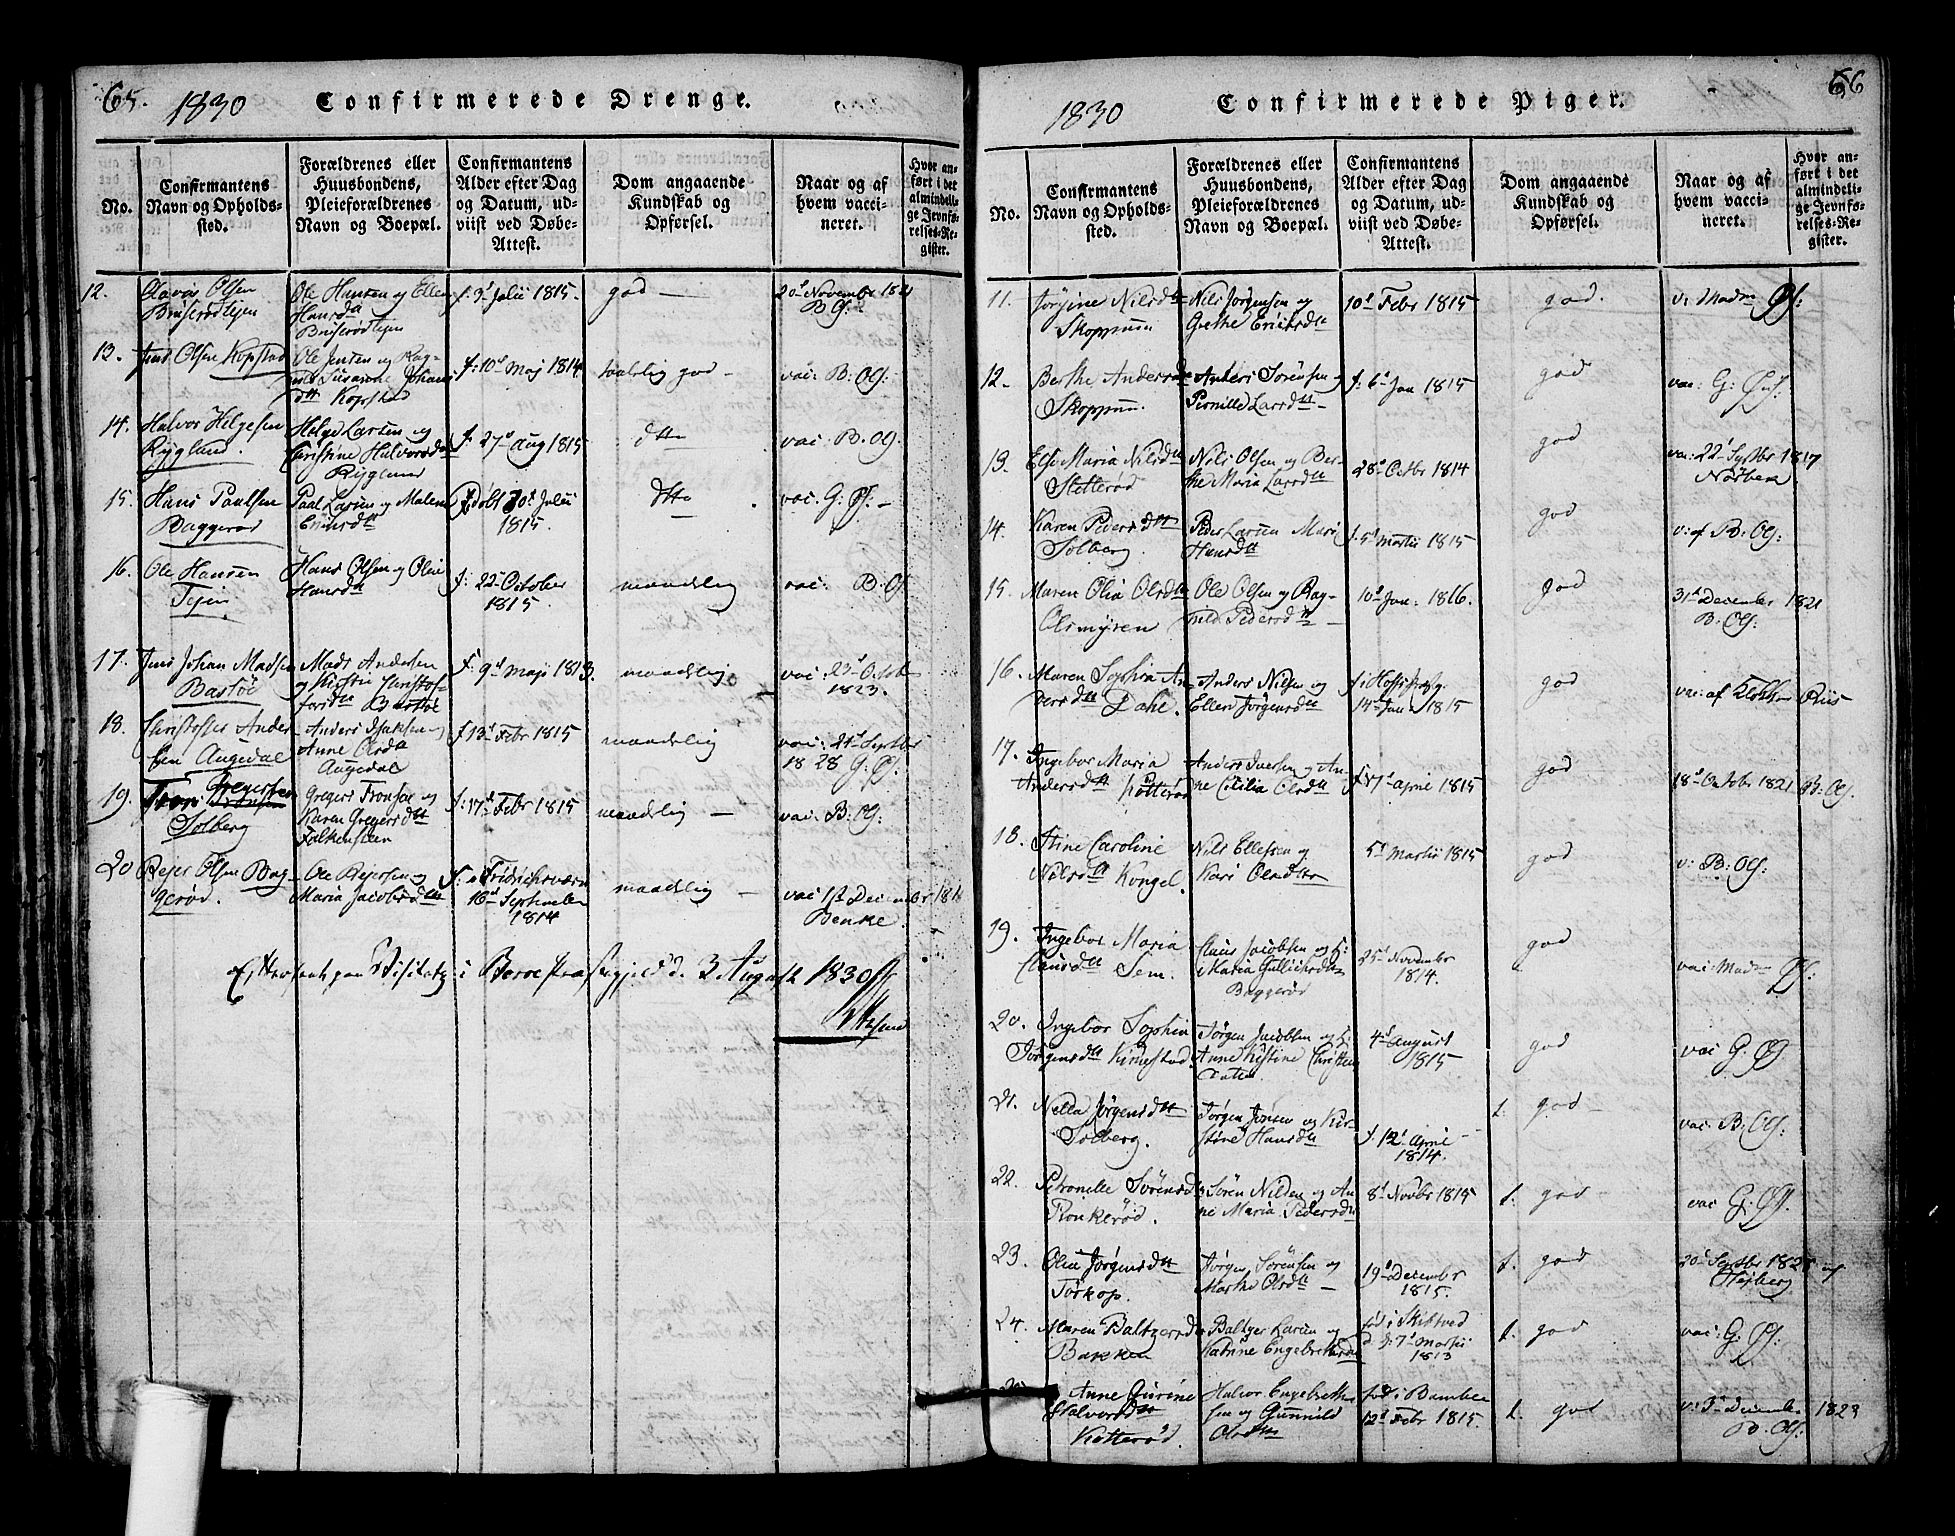 65.
1830
Confirmerede Drenge.
No.
Confirmantens
Navn og Opholds-
sted.
Forældrenes eller
Huusbondens,
Pleieforældrenes
Navn og Boepæl.
Confirmantens
Alder efter Dag
og Datum, ud-
viist ved Døbe-
Attest.
Dom angaaende
Kundskab og
Opførsel.
Naar og af
hvem vacci-
neret.
Hvor an-
ført i det
almindeli-
ge Jevnfø-
relses-Re-
gister.
12.
Olsen
Ole Hansen og Ellen
Hansdtr
f: 3d Julii 1815.
god
20d November 1821
B: Ol:
13.
Jens Olsen Kopstad
Ole Jensen og Rag-
Susanne Johans
dtt Kopstad
f: 10d Maj 1814
taalelig god
vac: B: Ol:
14.
Halvor Helgesen
Rygland.
Helge Larsen og
Christine Halvorsd
Rygland
f. 27d Aug 1815
dtto
vac. B. Ol.
15.
Hans Paulsen
Baggerød
Paul Larsen og Malene
døbt 30d Julii
1815.
dtto
vac. G: Øf:
16.
Ole Hansen
Tejen
Hans Olsen og Olia
Hansdtt
f: 22 October
1815.
maadelig
vac: B: Ol
17.
Jens Johan Madsen
Bastøe
Mads Andersen
og Kirstie Christof-
fersdtt Bastøe
f. 9d Maji 1813.
maadelig
vac: 23d Octob
1823.
18.
Christoffer Ander
sen Augedal
Anders Isaksen og
Anne Olsdtt
Augedal
f 13d Febr 1815
maadelig
vac: 21d Septbr
1828 G: Øf:
19.
Tron Gregersen
Solberg
Gregers Tronsen og
Karen Gregersdtt
Falkensteen
f: 17d Febr 1815
maadelig
vac: B: Ol:
20
Rejer Olsen Bag-
gerød.
Ole Rejersen og
Maria Jacobsdtt
f: i Fridrichsværn
16d September
1814
maadelig
vac 1st December 181
Benke.
Efterseet paa Visitatz i Borre Præstegield d. 3 August 1830
66
1830
Confirmerede Piger.
No.
Confirmantens
Navn og Opholds-
sted.
Forældrenes eller
Huusbondens,
Pleieforældrenes
Navn og Boepæl.
Confirmantens
Alder efter Dag
og Datum, ud-
viist ved Døbe-
Attest.
Dom angaaende
Kundskab og
Opførsel.
Naar og af
hvem vacci-
neret.
Hvor an-
ført i det
almindeli-
ge Jevnfø-
relses-Re-
gister.
11.
Jørgine Nilsdtt
Skoppum
Nils Jørgensen og
Grethe Ericksdtt
10d Febr 1815
god.
v: Madm Øf:
12.
Berthe Andersd
Skoppum.
Anders Sørensen og
Pernille Larsdtt
f. 6d Jan 1815
god
vac: G: Øf:
13.
Else Maria Nilsdtt
Stetterød
Nils Olsen og Ber-
the Maria Larsdtt
28d Octbr 1814
god
vac: 22d Septbr 1817
14.
Karen Pedersdtt
Solberg.
Peder Larsen Mari
Hansdtt
f. 5d Martii 1815
god
v: af B: Ol:
15.
Maren Olia Olsdtt
Olsmyren
Ole Olsen og Rag-
nild Pedersdtt
10d Jan: 1816.
god
31d December 1821
B: Ol:
16.
Maren Sophia An
dersdtt Dahl.
Anders Nilsen og
Ellen Jørgensdtt
14d Jan 1815
god
vac: af Klokker Riis
17.
Ingebor Maria
Andersdtt Kotterød
Anders Iversen og An
ne Cicilia Olsdtt
f. 17d April 1815
god
18d Octobr 1821 B: Ol.
18.
Stine Caroline
Nilsdtt Kongel.
Nils Ellefsen og
Kari Olsdtter
5d Martii 1815
god
v: B: Ol:
19.
Ingebor Maria
Clausdtt Sem.
Claus Jacobsen og H:
Maria Gullichsdtt
Baggerød
25d November
1814.
god
vac: Madm Øf:
20.
Ingebor Sophia
Jørgensdtt Kirkestad
Jørgen Jacobsen og H:
Anne Kistine Christen
4d August
1815
god
vac G: Øf
21.
Nella Jørgensdtt
Solberg.
Jørgen Jensen og Kir-
stine Hansdtt
f. 12d April
1814.
t. god
vac: B: Ol:
22.
Petronelle Sørensd
Ronkerød.
Søren Nilsen og An
ne Maria Pedersdtt
8d Novbr 1815
t. god
vac G: Øf.
23.
Olia Jørgensdtt
Torkop.
Jørgen Sørensen og
Marthe Olsdtt
19d December
1815.
t. god
20d Septbr 1825 af
Hejberg
24.
Maren Baltzersd
Bakken
Baltzer Larsen og
Katrine Engebretsd
fød i Skibtved
d. 7d Martii
1813
t. god
vac: G: Øf:
Anne Gurine
Halvorsdtt
Kotterød.
Halvor Engebreth
sen og Gunnild
Olsdtt
fød i Bamble
12d Febr 1815.
t. god
v: 3d Decemb 1823
B. Ol: